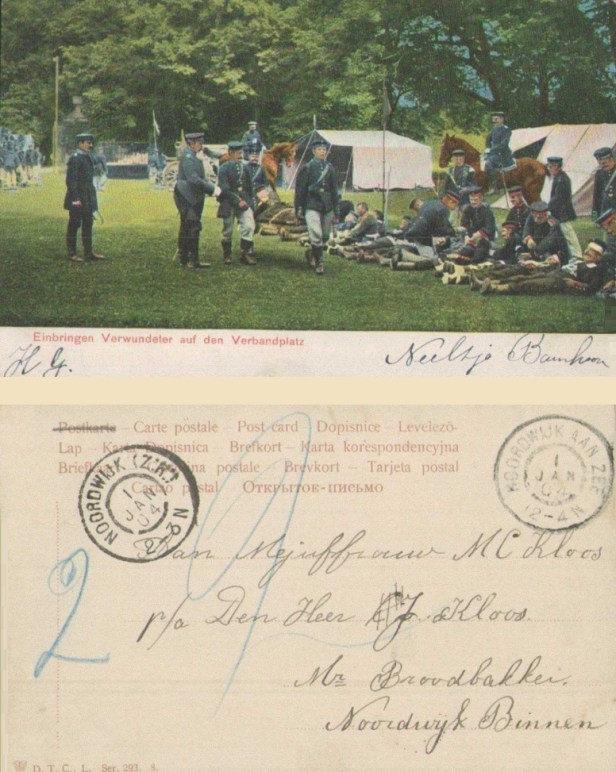 Einbringen Verwundeter auf den Verbandplatz
H. G. Neeltje
Postkarte – Carte postale – Post card – Dopisnice – Levelezö-
Lap – Karta Dopisnica – Brefkort – Karta korespondencyjna
postale – Brevkort – Tarjeta postal
postal Открытое-письмо
NOORDWIJK (Z.H.)
1
JAN
04
2-5 N
NOORDWIJK AAN ZEE
1
JAN
04
12-4 N
Van Mejuffrouw M C Kloos
p/a Den Heer J. Kloos.
Mr Broodbakker.
Noordwijk Binnen
2
D. T. C., L. Ser. 293. 8.